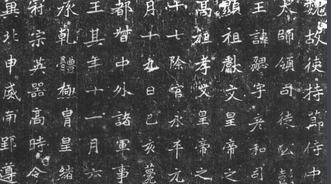 魏故使持節侍中
太師領司徒公彭
王諱勰字彥和司
顯祖獻文皇帝之
高祖孝文皇帝之
十七除官永平元
月十九日己亥薨
都督中外諸軍事
王其年十一月六
承乾體極胄皇緒
宗英器高時令
北申威南野遵